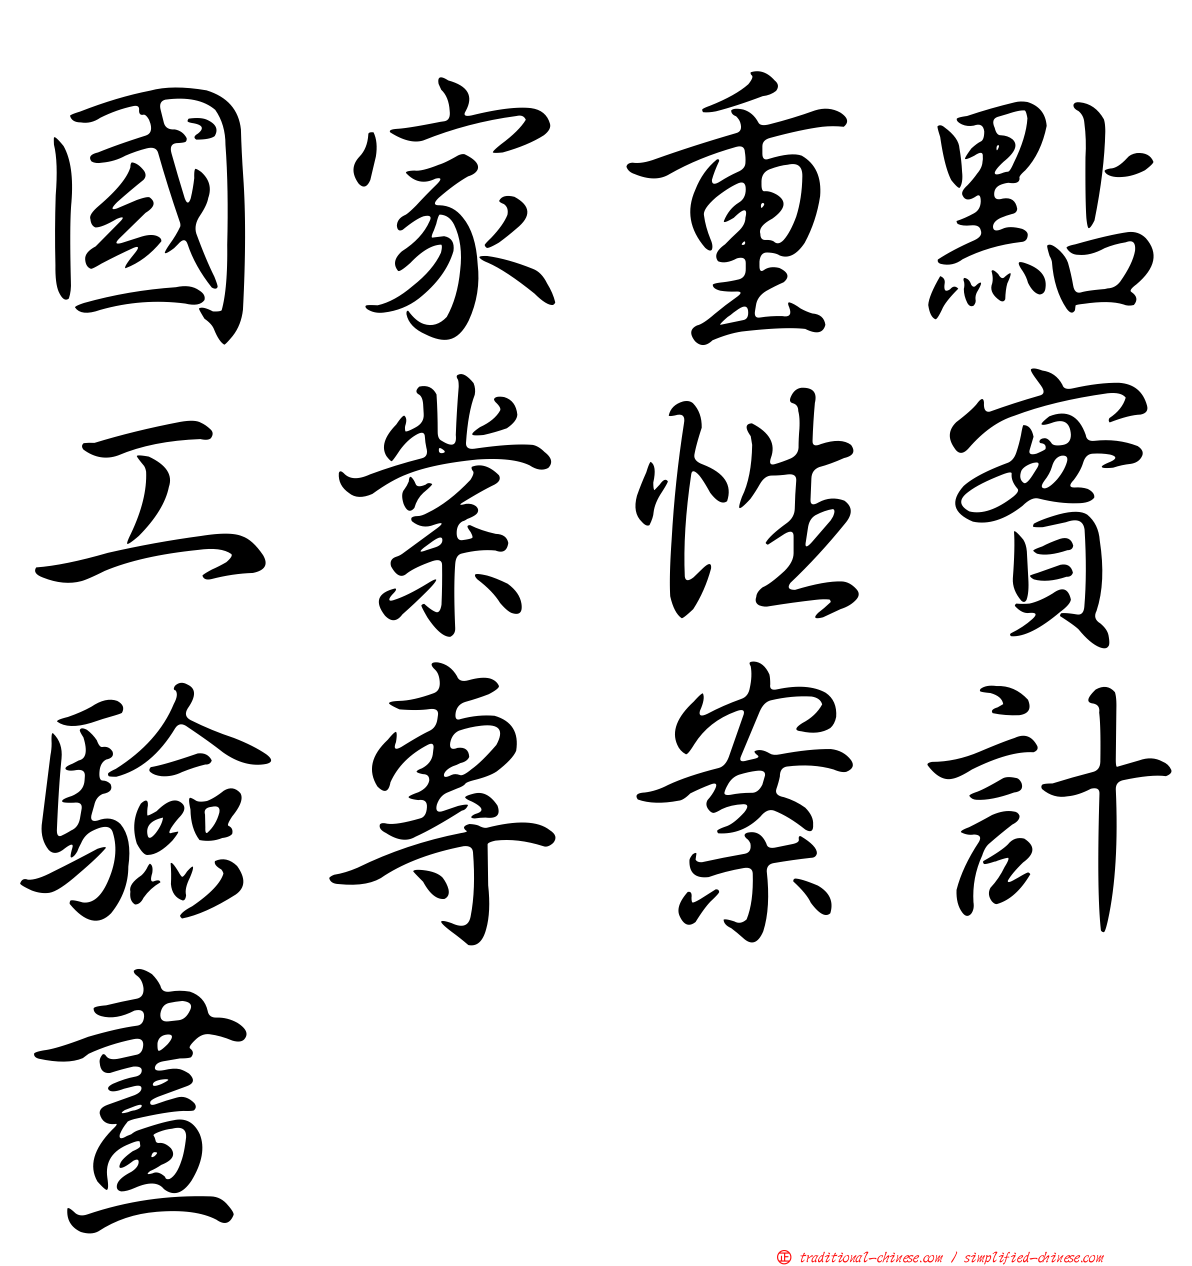 國家重點
工業性實
驗專案計
畫
正 traditional-chinese.com / simplified-chinese.com